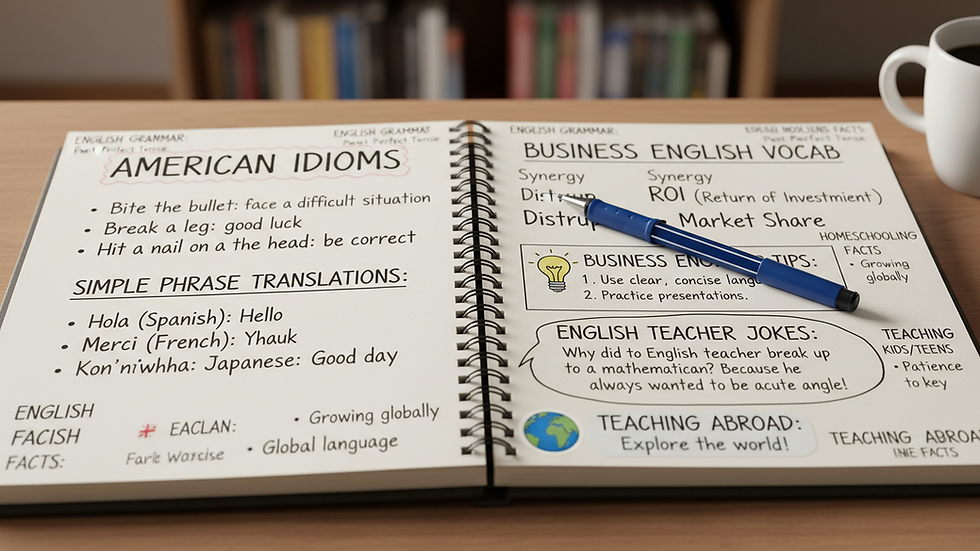 ENGLISH GRAMMAR:
Past Perfect Tense
ENGLISH GRAMMAS
Past Perfect Tense
AMERICAN IDIOMS
• Bite the bullet: face a difficult situation
• Break a leg: good luck
• Hit a nail on a the head: be correct
SIMPLE PHRASE TRANSLATIONS:
• Hola (Spanish): Hello
• Merci (French): Yhauk
• Kon'ni'whha: Japanese: Good day
ENGLISH
FACISH
FACTS:
EACLAN:
• Growing globally
• Global language
ENGLISH GRAMMAR:
FACTS:
Past Perfect Tense
BUSINESS ENGLISH VOCAB
Synergy
Synergy
ROI (Return of Investiment)
Distrup
Market Share
HOMESCHOOLING
FACTS
• Growing
globally
BUSINESS TIPS:
1. Use clear, concise
2. Practice presentations.
ENGLISH TEACHER JOKES:
Why did to English teacher break up
to a mathematican? Because he
always wanted to be acute angle!
TEACHING
KIDS/TEENS
• Patience
to key
TEACHING ABROAD:
Explore the world!
TEACHING
FACTS